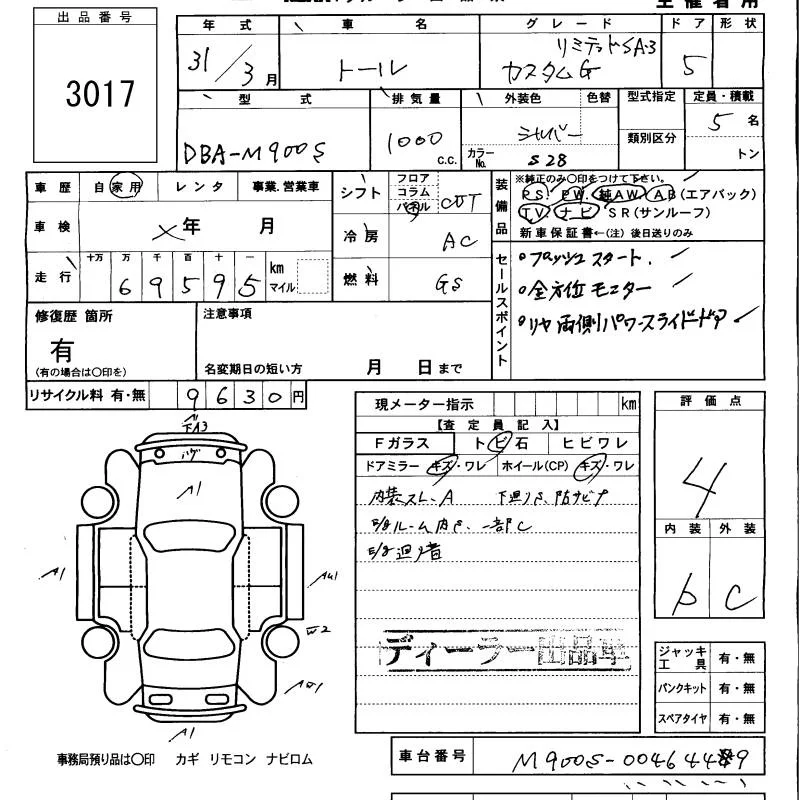 出品番号
3017
年式 車名 グレード ドア 形状
31/3月 トール リミテッドSA3 カスタムG 5
型式 排気量 外装色 色替 型式指定 定員・積載
DBA-M900S 1000 c.c. シルバー カラーNo. S28 類別区分 5名 トン
車歴 自家用 レンタ 事業.営業車
シフト フロア コラム パネル CVT
装備品 ※純正のみ〇印をつけて下さい。
PS. PW. 純AW. AB(エアバック)
TV. ナビ SR(サンルーフ)
新車保証書←(注) 後日送りのみ
車検 年 月
冷房 AC
走行 十万 万 千 百 十 一 km マイル
69595
燃料 GS
セールスポイント
プッシュスタート.
全方位モニター
リヤ両側パワースライドドア
修復歴 箇所 注意事項
有
(有の場合は〇印を) 名変期日の短い方 月 日まで
リサイクル料 有・無 9630円
現メーター指示 km
【査定員記入】
Fガラス トビ石 ヒビワレ
ドアミラー キズ・ワレ ホイール(CP) キズ・ワレ
内装スレ、A
ルーム内
一部C
評価点
4
内装 外装
C
A1
A1
A1
W2
A1
ディーラー出品車
ジャッキ工具 有・無
パンクキット 有・無
スペアタイヤ 有・無
事務局預り品は〇印 カギ リモコン ナビロム
車台番号 M900S-00464